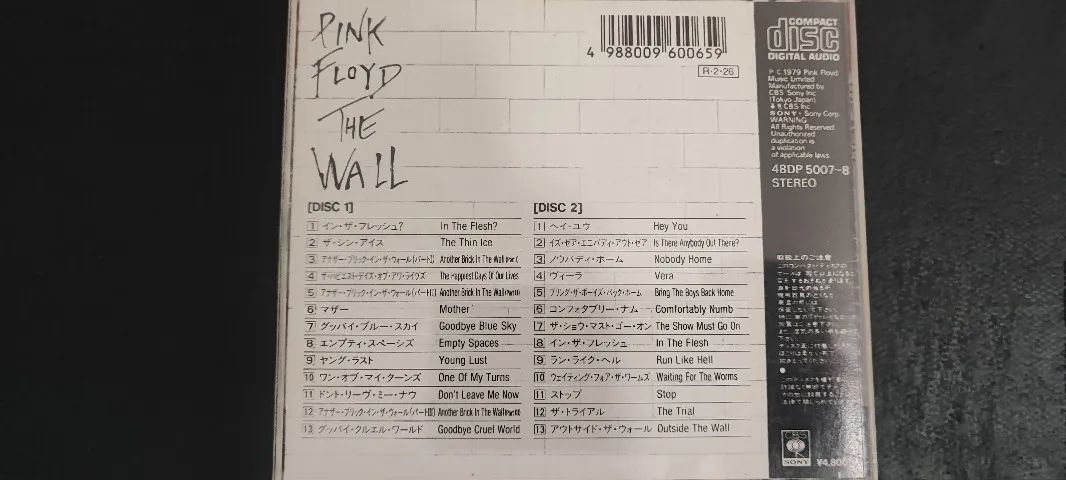 PINK
FLOYD
THE
WALL
4 988009 600659
R・2・26
COMPACT
disc
DIGITAL AUDIO
P C 1979 Pink Floyd
Music Limited
Manufactured by
CBS Sony Inc
(Tokyo Japan)
CBS Inc
SONY Sony Corp
WARNING
All Rights Reserved
Unauthorized
duplication is
a violation
of applicable laws
48DP 5007~8
STEREO
[DISC 1]
1 イン・ザ・フレッシュ? In The Flesh?
2 ザ・シン・アイス The Thin Ice
3 アナザー・ブリック・イン・ザ・ウォール(パートI) Another Brick In The Wall (Part I)
4 ザ・ハピエスト・デイズ・オブ・アワ・ライヴズ The Happiest Days Of Our Lives
5 アナザー・ブリック・イン・ザ・ウォール(パートII) Another Brick In The Wall (Part II)
6 マザー Mother
7 グッバイ・ブルー・スカイ Goodbye Blue Sky
8 エンプティ・スペーシズ Empty Spaces
9 ヤング・ラスト Young Lust
10 ワン・オブ・マイ・ターンズ One Of My Turns
11 ドント・リーヴ・ミー・ナウ Don't Leave Me Now
12 アナザー・ブリック・イン・ザ・ウォール(パートIII) Another Brick In The Wall (Part III)
13 グッバイ・クルエル・ワールド Goodbye Cruel World
[DISC 2]
1 ヘイ・ユウ Hey You
2 イズ・ゼア・エニバディ・アウト・ゼア Is There Anybody Out There?
3 ノウバディ・ホーム Nobody Home
4 ヴィーラ Vera
5 ブリング・ザ・ボーイズ・バック・ホーム Bring The Boys Back Home
6 コンフォタブリー・ナム Comfortably Numb
7 ザ・ショウ・マスト・ゴー・オン The Show Must Go On
8 イン・ザ・フレッシュ In The Flesh
9 ラン・ライク・ヘル Run Like Hell
10 ウェイティング・フォア・ザ・ワームズ Waiting For The Worms
11 ストップ Stop
12 ザ・トライアル The Trial
13 アウトサイド・ザ・ウォール Outside The Wall
取扱上のご注意
CBS
SONY
¥4,800